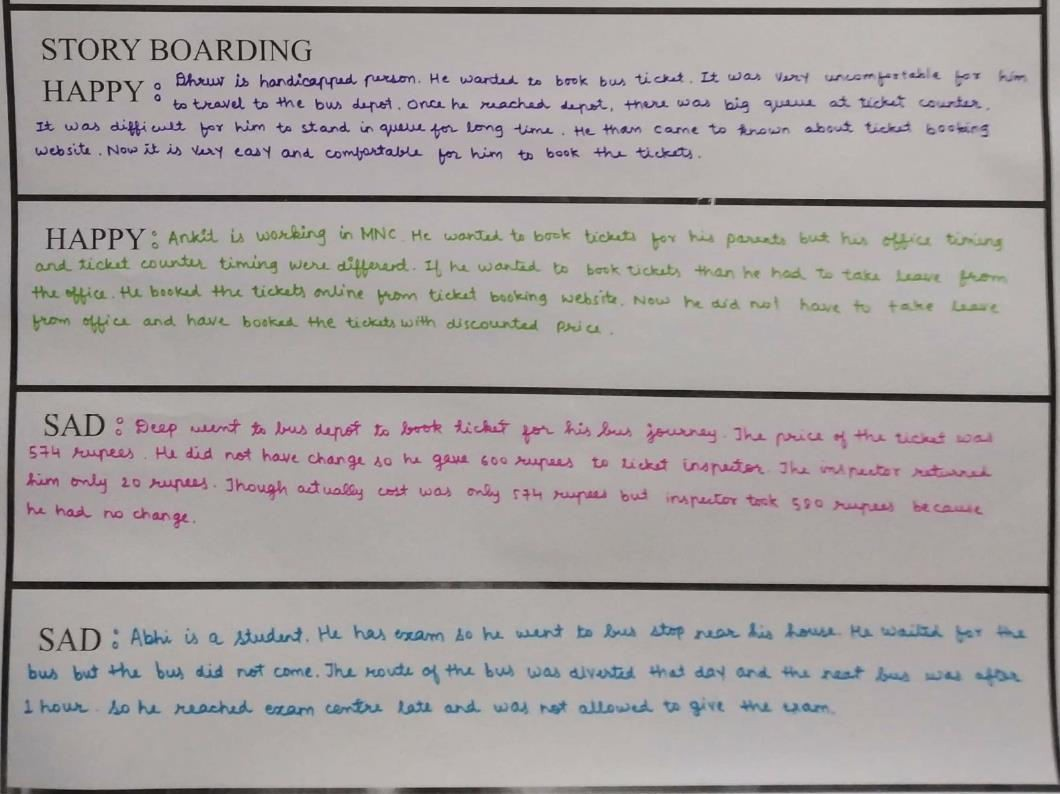 STORY BOARDING
HAPPY : Dhruv is handicapped person. He wanted to book bus ticket. It was very uncomfortable for him
to travel to the bus depot. Once he reached depot, there was big queue at ticket counter.
It was difficult for him to stand in queue for long time. He than came to known about ticket booking
website. Now it is very easy and comfortable for him to book the tickets.
HAPPY : Ankit is working in MNC. He wanted to book tickets for his parents but his office timing
and ticket counter timing were differend. If he wanted to book tickets than he had to take leave from
the office. He booked the tickets online from ticket booking website. Now he did not have to take leave
from office and have booked the tickets with discounted price.
SAD : Deep went to bus depot to book ticket for his bus journey. The price of the ticket was
574 rupees. He did not have change so he gave 600 rupees to ticket inspector. The inspector returned
him only 20 rupees. Though actually cost was only 574 rupees but inspector took 580 rupees because
he had no change.
SAD : Abhi is a student. He has exam so he went to bus stop near his house. He waited for the
bus but the bus did not come. The route of the bus was diverted that day and the next bus was after
1 hour. So he reached exam centre late and was not allowed to give the exam.